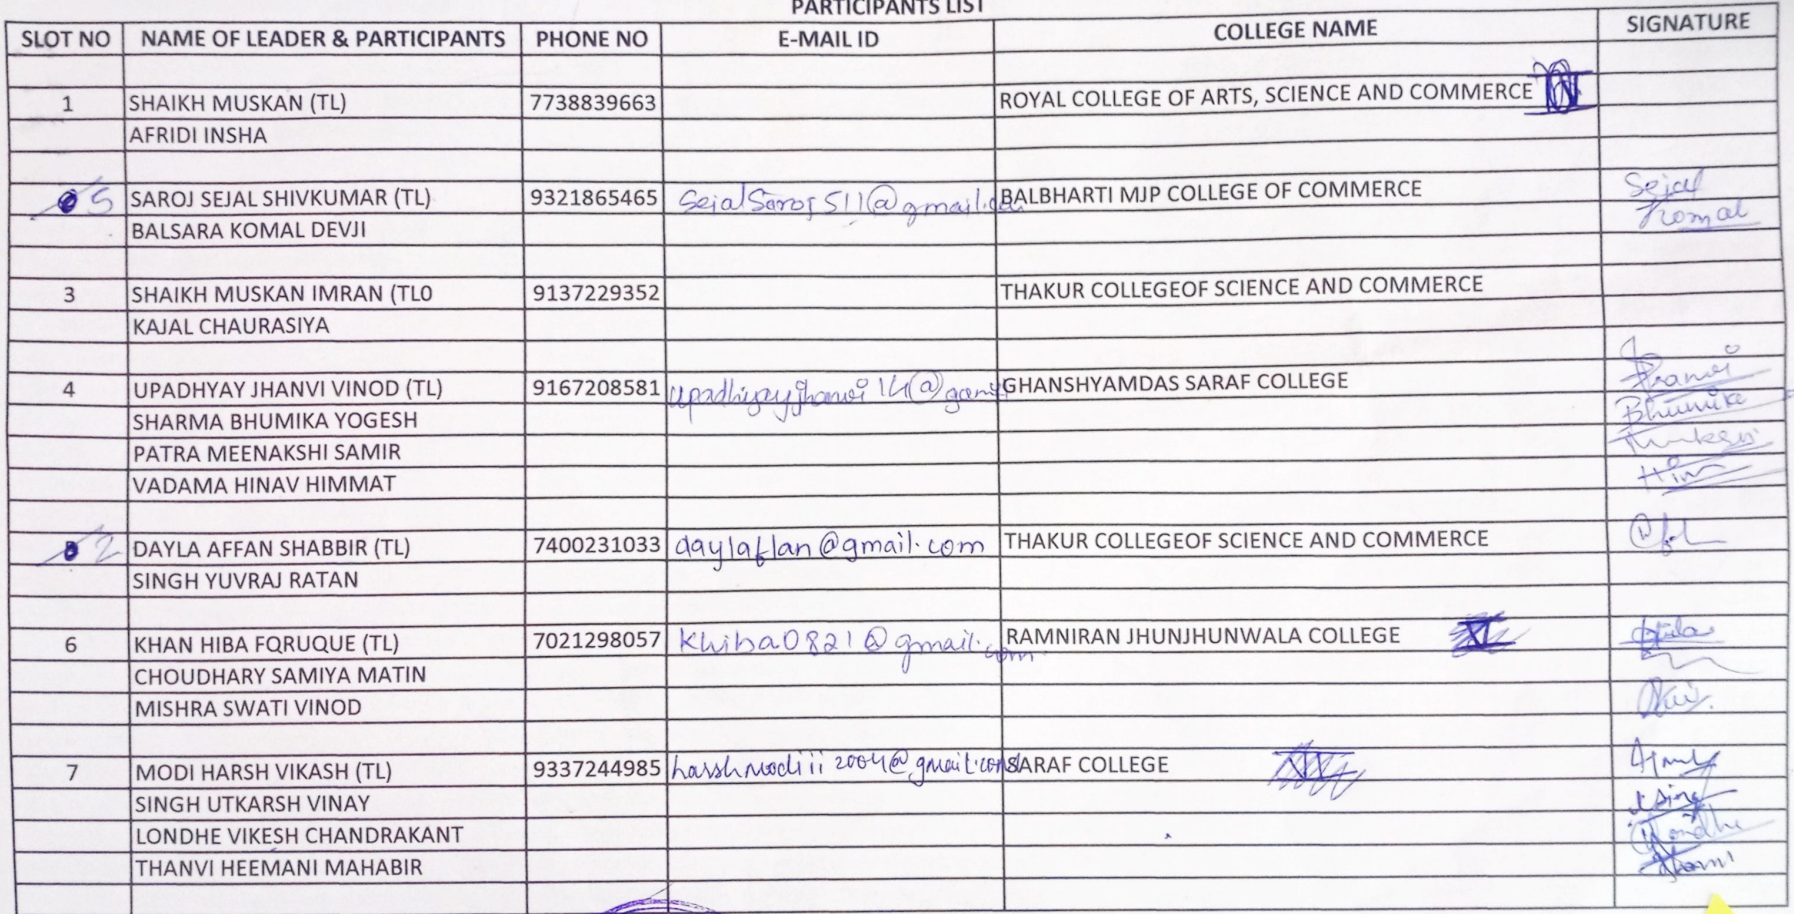 PARTICIPANTS LIST
SLOT NO NAME OF LEADER & PARTICIPANTS PHONE NO E-MAIL ID COLLEGE NAME SIGNATURE
1 SHAIKH MUSKAN (TL) 7738839663 ROYAL COLLEGE OF ARTS, SCIENCE AND COMMERCE
AFRIDI INSHA
5 SAROJ SEJAL SHIVKUMAR (TL) 9321865465 SejalSaroj511@gmail.com BALBHARTI MJP COLLEGE OF COMMERCE Sejal
BALSARA KOMAL DEVJI Komal
3 SHAIKH MUSKAN IMRAN (TL0 9137229352 THAKUR COLLEGEOF SCIENCE AND COMMERCE
KAJAL CHAURASIYA
4 UPADHYAY JHANVI VINOD (TL) 9167208581 GHANSHYAMDAS SARAF COLLEGE
SHARMA BHUMIKA YOGESH Bhumika
PATRA MEENAKSHI SAMIR
VADAMA HINAV HIMMAT
2 DAYLA AFFAN SHABBIR (TL) 7400231033 THAKUR COLLEGEOF SCIENCE AND COMMERCE
SINGH YUVRAJ RATAN
6 KHAN HIBA FQRUQUE (TL) 7021298057 khiba0821@gmail.com RAMNIRAN JHUNJHUNWALA COLLEGE
CHOUDHARY SAMIYA MATIN
MISHRA SWATI VINOD
7 MODI HARSH VIKASH (TL) 9337244985 harshmodiii2004@gmail.com SARAF COLLEGE
SINGH UTKARSH VINAY
LONDHE VIKESH CHANDRAKANT Londhe
THANVI HEEMANI MAHABIR